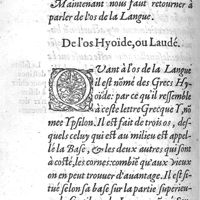 Maintenant nous faut retourner à
parler de l'os de la Langue.
De l'os Hyoïde, ou Laudé.
QVant à l'os de la Langue
il est nōmé des Grecs Hy-
oïde: par ce qu'il ressemble
à ceste lettre Grecque Y, nō
mee Ypsilon. Il est fait de trois os, des-
quels celuy qui est au milieu est appel-
lé la Base, & les deux autres qui sont
à costé, les cornes: combiē qu'aux vieux
on en peut trouuer d'auantage. Il est si-
tué selon sa base sur la partie superieu-